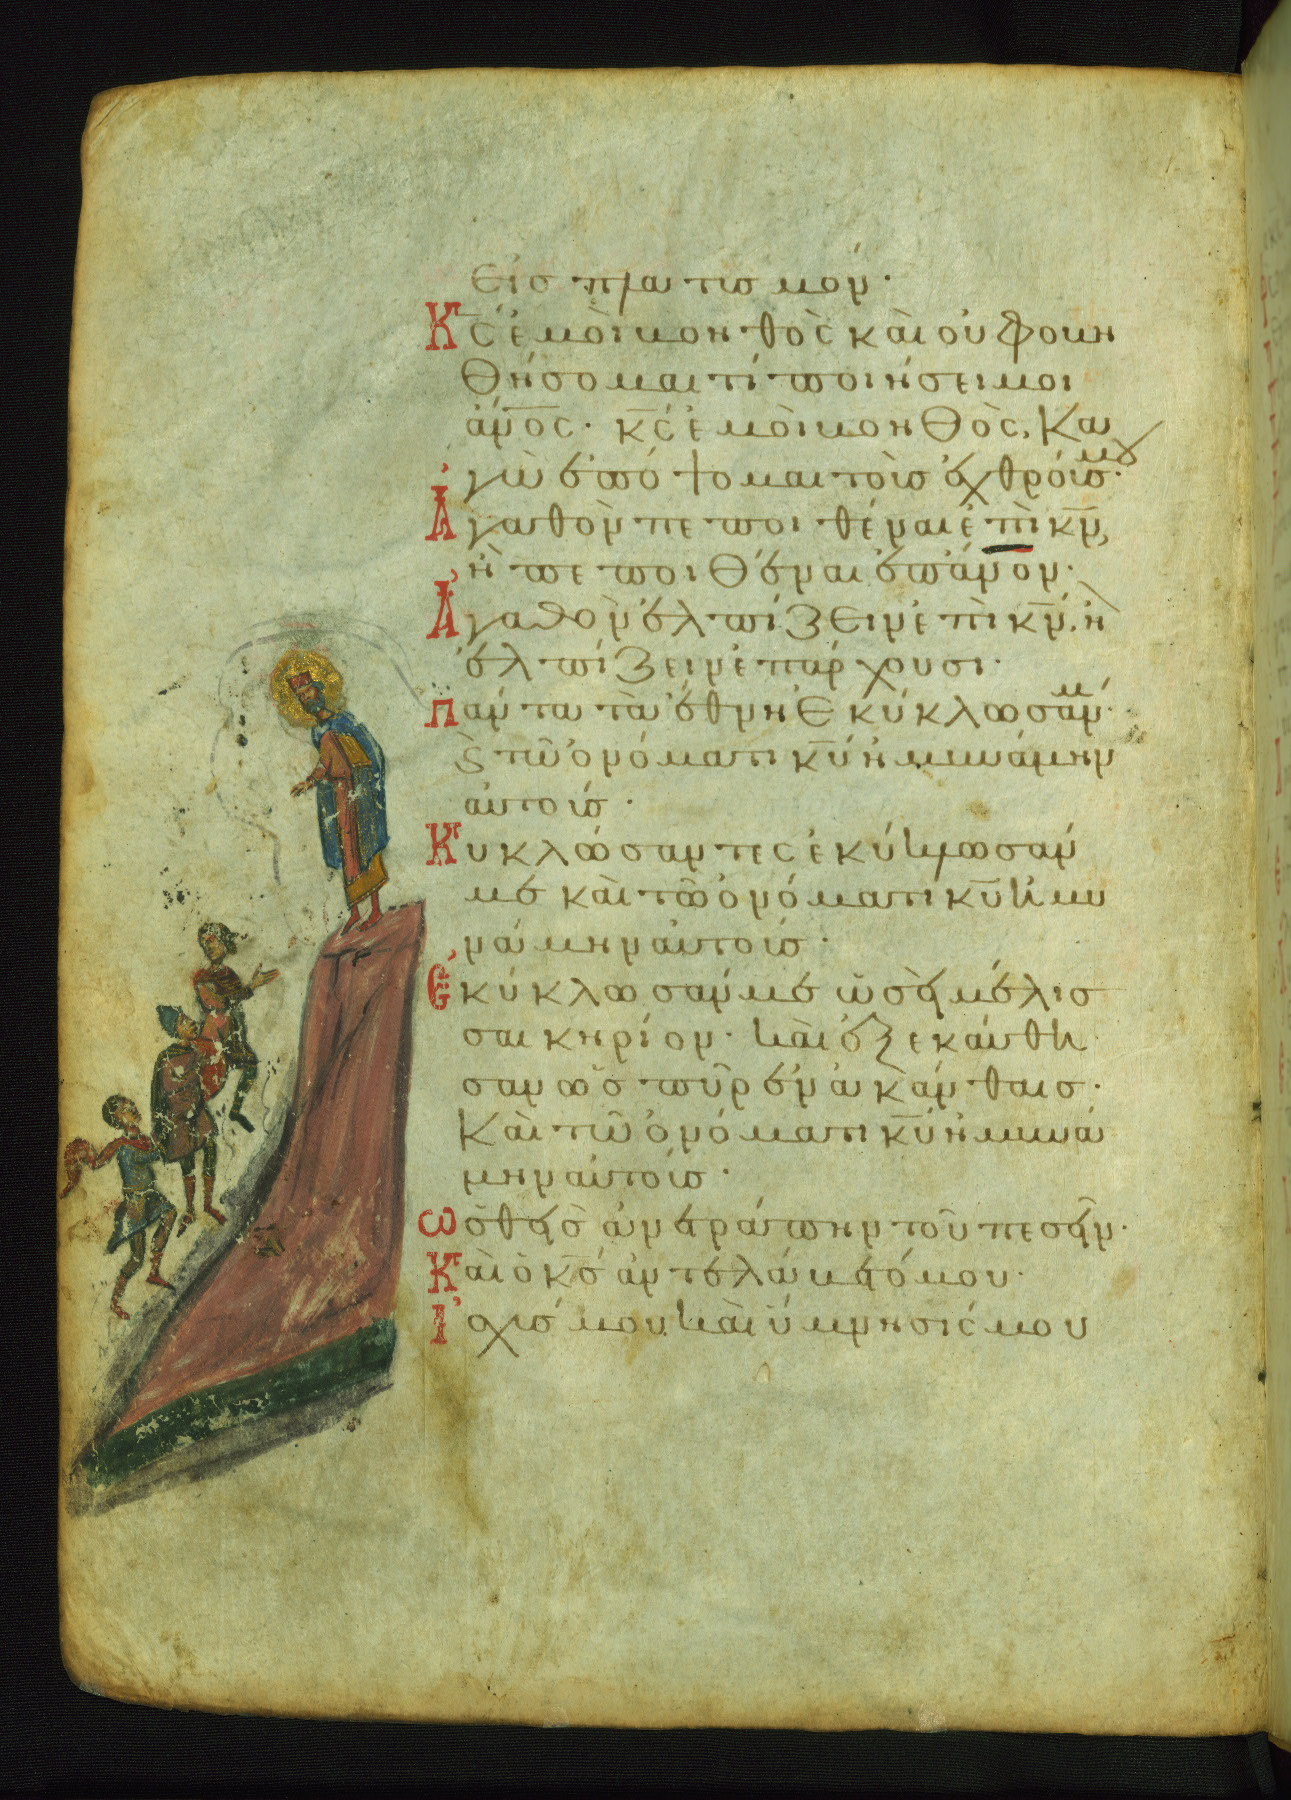 εἰς πλατισμόν·
Κ̅ς̅ ἐμοὶ βοηθὸς καὶ οὐ φοβη
θήσομαι τί ποιήσει μοι
ἄν̅ο̅ς· κ̅ς̅ ἐμοὶ βοηθὸς, κα
γὼ ἐπόψομαι τοὶς ἐχθροίς μου·
Ἀγαθὸν πεποιθέναι ἐπὶ κ̅ν̅,
ἢ πεποιθέναι ἐπ' ἄνον·
Ἀγαθὸν ἐλπίζειν ἐπὶ κ̅ν̅, ἢ
ἐλπίζειν ἐπ' άρχουσι·
Πάντα τὰ ἔθνη ἐκύκλωσάν με·
καὶ τῶ ὀνόματι κ̅υ̅ ἠμυνάμην
αὐτοίς·
Κυκλώσαντες ἐκύκλωσάν
με καὶ τῶ ὀνόματι κ̅υ̅ ἠμυ
νάμην αὐτοίς·
Ἐκύκλωσάν με ὡσεὶ μέλισ
σαι κηρίον· καὶ ἐξεκαύθη
σαν ὡς πῦρ ἐν ἀκάνθαις·
Καὶ τῶ ὀνόματι κ̅υ̅ ἠμυνά
μην αὐτοίς·
Ὠσθεὶς ἀνετράπην τοῦ πεσεῖν·
Καὶ ὁ κ̅ς̅ ἀντελάβετό μου·
Ἰσχίς μου καὶ ὕμνησίς μου